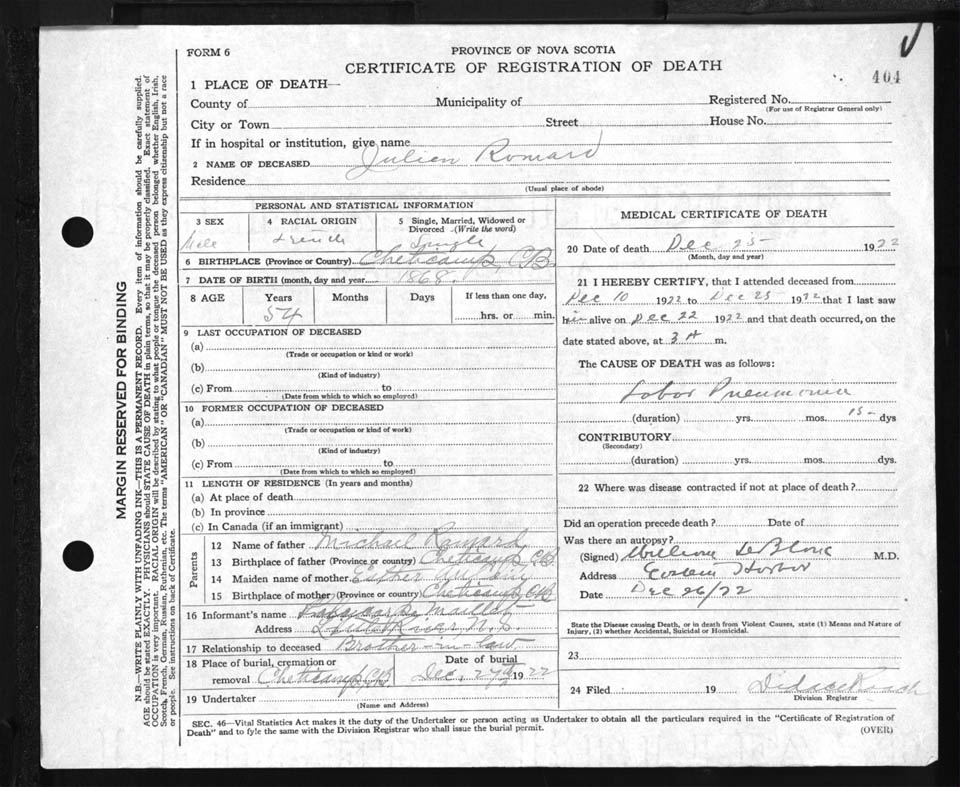 FORM 6
PROVINCE OF NOVA SCOTIA
CERTIFICATE OF REGISTRATION OF DEATH
404
1 PLACE OF DEATH—
County of Municipality of Registered No.
(For use of Registrar General only)
City or Town Street House No.
If in hospital or institution, give name
2 NAME OF DECEASED Julien Romard
Residence
(Usual place of abode)
PERSONAL AND STATISTICAL INFORMATION
3 SEX 4 RACIAL ORIGIN 5 Single, Married, Widowed or Divorced (Write the word)
Male French Single
6 BIRTHPLACE (Province or Country) Cheticamp, CB.
7 DATE OF BIRTH (month, day and year) 1868.
8 AGE Years Months Days If less than one day,
54 hrs. or min.
9 LAST OCCUPATION OF DECEASED
(a)
(Trade or occupation or kind or work)
(b)
(Kind of industry)
(c) From to
(Date from which to which so employed)
10 FORMER OCCUPATION OF DECEASED
(a)
(Trade or occupation or kind of work)
(b)
(Kind of industry)
(c) From to
(Date from which to which so employed)
11 LENGTH OF RESIDENCE (In years and months)
(a) At place of death
(b) In province
(c) In Canada (if an immigrant)
Parents
12 Name of father Michael Romard
13 Birthplace of father (Province or country) Cheticamp, CB
14 Maiden name of mother Esther
15 Birthplace of mother (Province or country) Cheticamp, CB
16 Informant's name Maillet
Address N.S.
17 Relationship to deceased Brother-in-law
18 Place of burial, cremation or removal Cheticamp, CB Date of burial Dec. 27th 1922
19 Undertaker
(Name and Address)
MEDICAL CERTIFICATE OF DEATH
20 Date of death Dec 25 1922
(Month, day and year)
21 I HEREBY CERTIFY, that I attended deceased from
Dec 10 1922 to Dec 25 1922 that I last saw
him alive on Dec 22 1922 and that death occurred, on the
date stated above, at 3 A m.
The CAUSE OF DEATH was as follows:
Lobar Pneumonia
(duration) yrs. mos. 15 dys
CONTRIBUTORY
(Secondary)
(duration) yrs. mos. dys.
22 Where was disease contracted if not at place of death?
Did an operation precede death? Date of
Was there an autopsy?
(Signed) William LeBlanc M.D.
Address Harbor
Date Dec 26/22
State the Disease causing Death, or in death from Violent Causes, state (1) Means and Nature of
Injury, (2) whether Accidental, Suicidal or Homicidal.
23
24 Filed 19
Division Registrar
SEC. 46—Vital Statistics Act makes it the duty of the Undertaker or person acting as Undertaker to obtain all the particulars required in the "Certificate of Registration of
Death" and to fyle the same with the Division Registrar who shall issue the burial permit.
(OVER)
MARGIN RESERVED FOR BINDING
N.B.—WRITE PLAINLY WITH UNFADING INK—THIS IS A PERMANENT RECORD. Every item of information should be carefully supplied.
AGE should be stated EXACTLY. PHYSICIANS should STATE CAUSE OF DEATH in plain terms, so that it may be properly classified. Exact statement of
OCCUPATION is very important. RACIAL ORIGIN will be described by stating to what people or tongue the deceased person belonged whether English, Irish,
Scotch, French, German, Russian, Ruthenian, etc. The terms "AMERICAN" OR "CANADIAN" MUST NOT BE USED as they express citizenship but not a race
or people. See instructions on back of Certificate.